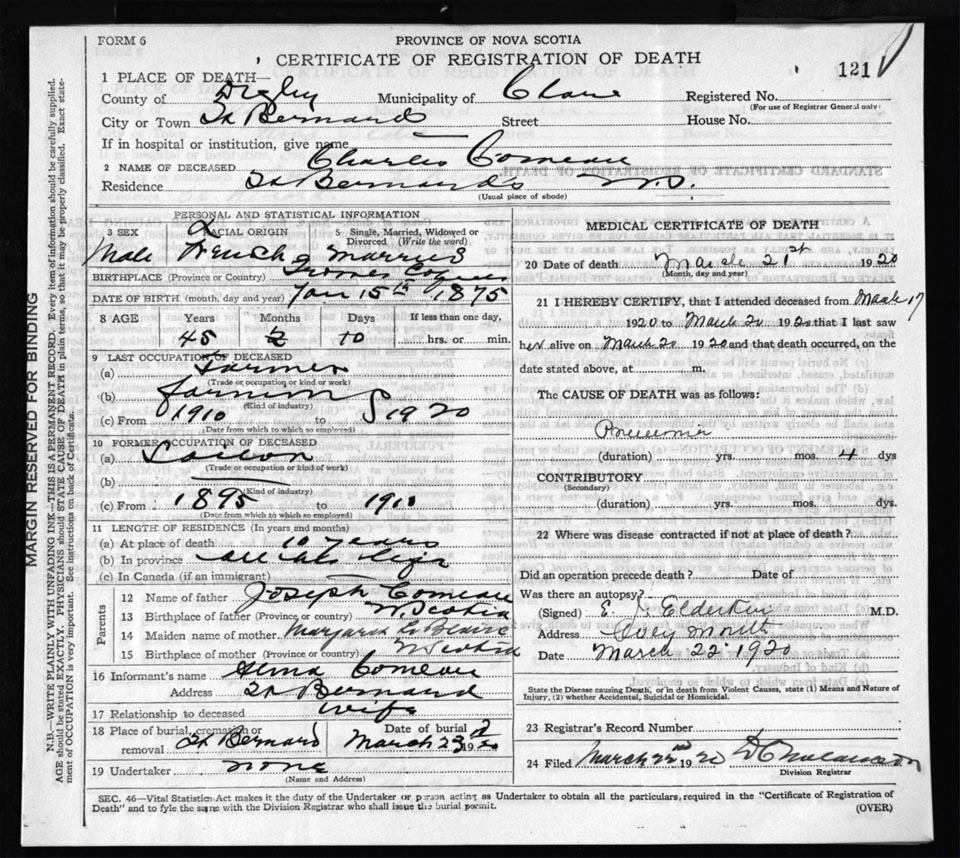 FORM 6
PROVINCE OF NOVA SCOTIA
CERTIFICATE OF REGISTRATION OF DEATH
121
1 PLACE OF DEATH—
County of Digby Municipality of Clare Registered No.
(For use of Registrar General only)
City or Town St Bernards Street House No.
If in hospital or institution, give name
2 NAME OF DECEASED Charles Comeau
Residence St Bernards N.S.
(Usual place of abode)
PERSONAL AND STATISTICAL INFORMATION
3 SEX 4 RACIAL ORIGIN 5 Single, Married, Widowed or Divorced (Write the word)
Male French Married
BIRTHPLACE (Province or Country)
DATE OF BIRTH (month, day and year) Jan 15th 1875
8 AGE Years Months Days If less than one day,
45 2 10 hrs. or min.
9 LAST OCCUPATION OF DECEASED
(a) Farmer
(Trade or occupation or kind of work)
(b) farming
(Kind of industry)
(c) From 1910 to 1920
(Date from which to which so employed)
10 FORMER OCCUPATION OF DECEASED
(a) Sailor
(Trade or occupation or kind of work)
(b)
(Kind of industry)
(c) From 1895 to 1910
(Date from which to which so employed)
11 LENGTH OF RESIDENCE (In years and months)
(a) At place of death 10 years
(b) In province all his life
(c) In Canada (if an immigrant)
Parents
12 Name of father Joseph Comeau
13 Birthplace of father (Province or country) N. Scotia
14 Maiden name of mother Margaret LeBlanc
15 Birthplace of mother (Province or country) N Scotia
16 Informant's name Comeau
Address St Bernard
17 Relationship to deceased wife
18 Place of burial, cremation or removal St Bernard Date of burial March 23d 1920
19 Undertaker none
(Name and Address)
MEDICAL CERTIFICATE OF DEATH
20 Date of death March 21st 1920
(Month, day and year)
21 I HEREBY CERTIFY, that I attended deceased from March 17
1920 to March 20 1920 that I last saw
alive on March 20 1920 and that death occurred, on the
date stated above, at m.
The CAUSE OF DEATH was as follows:
(duration) yrs. mos. 4 dys
CONTRIBUTORY
(Secondary)
(duration) yrs. mos. dys.
22 Where was disease contracted if not at place of death?
Did an operation precede death? Date of
Was there an autopsy?
(Signed) E. J. Elderkin M.D.
Address
Date March 22 1920
State the Disease causing Death, or in death from Violent Causes, state (1) Means and Nature of
Injury, (2) whether Accidental, Suicidal or Homicidal.
23 Registrar's Record Number
24 Filed March 22nd 1920
Division Registrar
SEC. 46—Vital Statistics Act makes it the duty of the Undertaker or person acting as Undertaker to obtain all the particulars, required in the "Certificate of Registration of
Death" and to fyle the same with the Division Registrar who shall issue the burial permit.
(OVER)
MARGIN RESERVED FOR BINDING
N.B.—WRITE PLAINLY WITH UNFADING INK—THIS IS A PERMANENT RECORD. Every item of information should be carefully supplied.
AGE should be stated EXACTLY. PHYSICIANS should STATE CAUSE OF DEATH in plain terms, so that it may be properly classified. Exact state-
ment of OCCUPATION is very important. See instructions on back of Certificate.